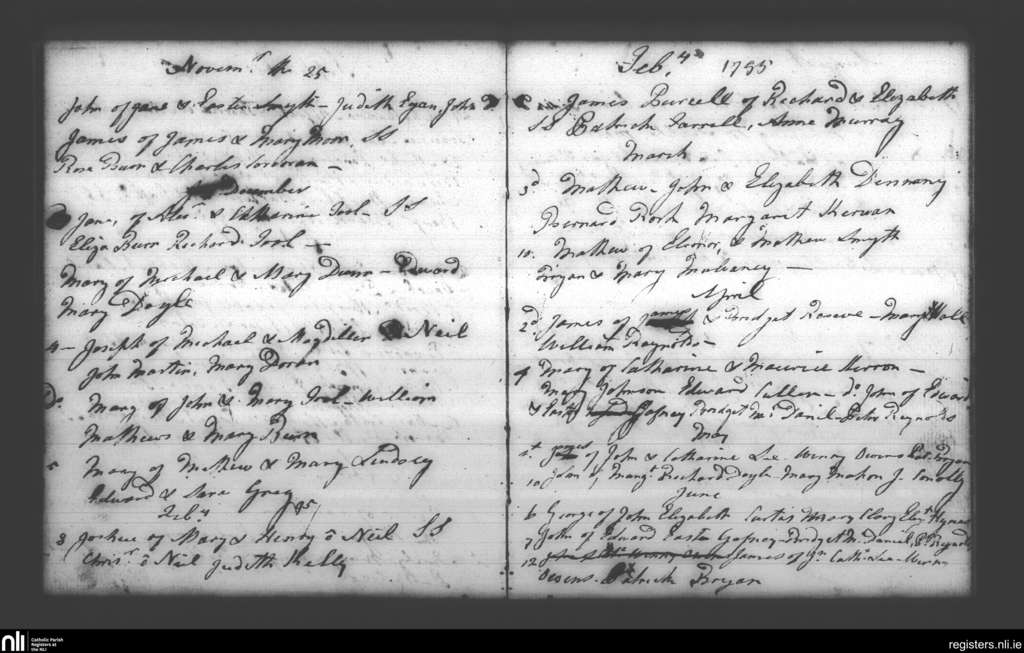 Novemr th 25
John of Jane & Easter Smyth - Judith Egan, John
James of James & Mary SS
Rose Burn & Charles
December
Jane, of Alexr & Catharine Tool - SS
Eliza Burn Richard Tool -
Mary of Michael & Mary Dunn - Edward
Mary Doyle
4 - Joseph of Michael & Neil
John Martin, Mary Doran
Do Mary of John & Mary Tool - William
Mathews & Mary Burn
5 Mary of Mathew & Mary Lindsey
Edward & Sara Grey
Feby
3 of Mary & Henry o Neil SS
Chrisr o Neil Judith Kelly
Feb,y 1755
James Purcell of Richard & Elizabeth
SS Patrick Farrell, Anne Murray
March
3d Mathew - John & Elizabeth Dennany
Bernard Rork Margaret Kerwan
10. Mathew of Elinor, & Mathew Smyth
Bryan & Mary Mulvaney -
April
2d James of James & Bridget - Mary Wall
William Reynolds -
4 Mary of Catharine & Maurice Herron -
Mary Johnson Edward Cullen - Do John of Edward
& Easter Gafney Bridget Mc Daniel Petr Reynolds
May
1t James of John & Catharine Lee - Winny Owens Pat Bryan
10 John, Margt Richard Doyle - Mary Mahon J. Conolly
June
6 George of John Elizabeth Curtis Mary Clary
7 John of Edward Easter Gafney - Bridget Mc Daniel, Pr Reynolds
12 James of Jn Catharine - Winny
Owens - Patrick Bryan
nli
Catholic Parish
Registers at
the NLI
registers.nli.ie